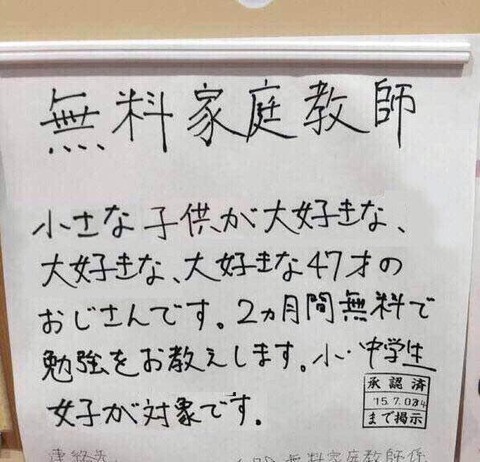 無料家庭教師
小さな子供が大好きな、
大好きな、大好きな47才の
おじさんです。2ヵ月間無料で
勉強をお教えします。小・中学生
女子が対象です。
承認済
まで掲示
無料家庭教師係